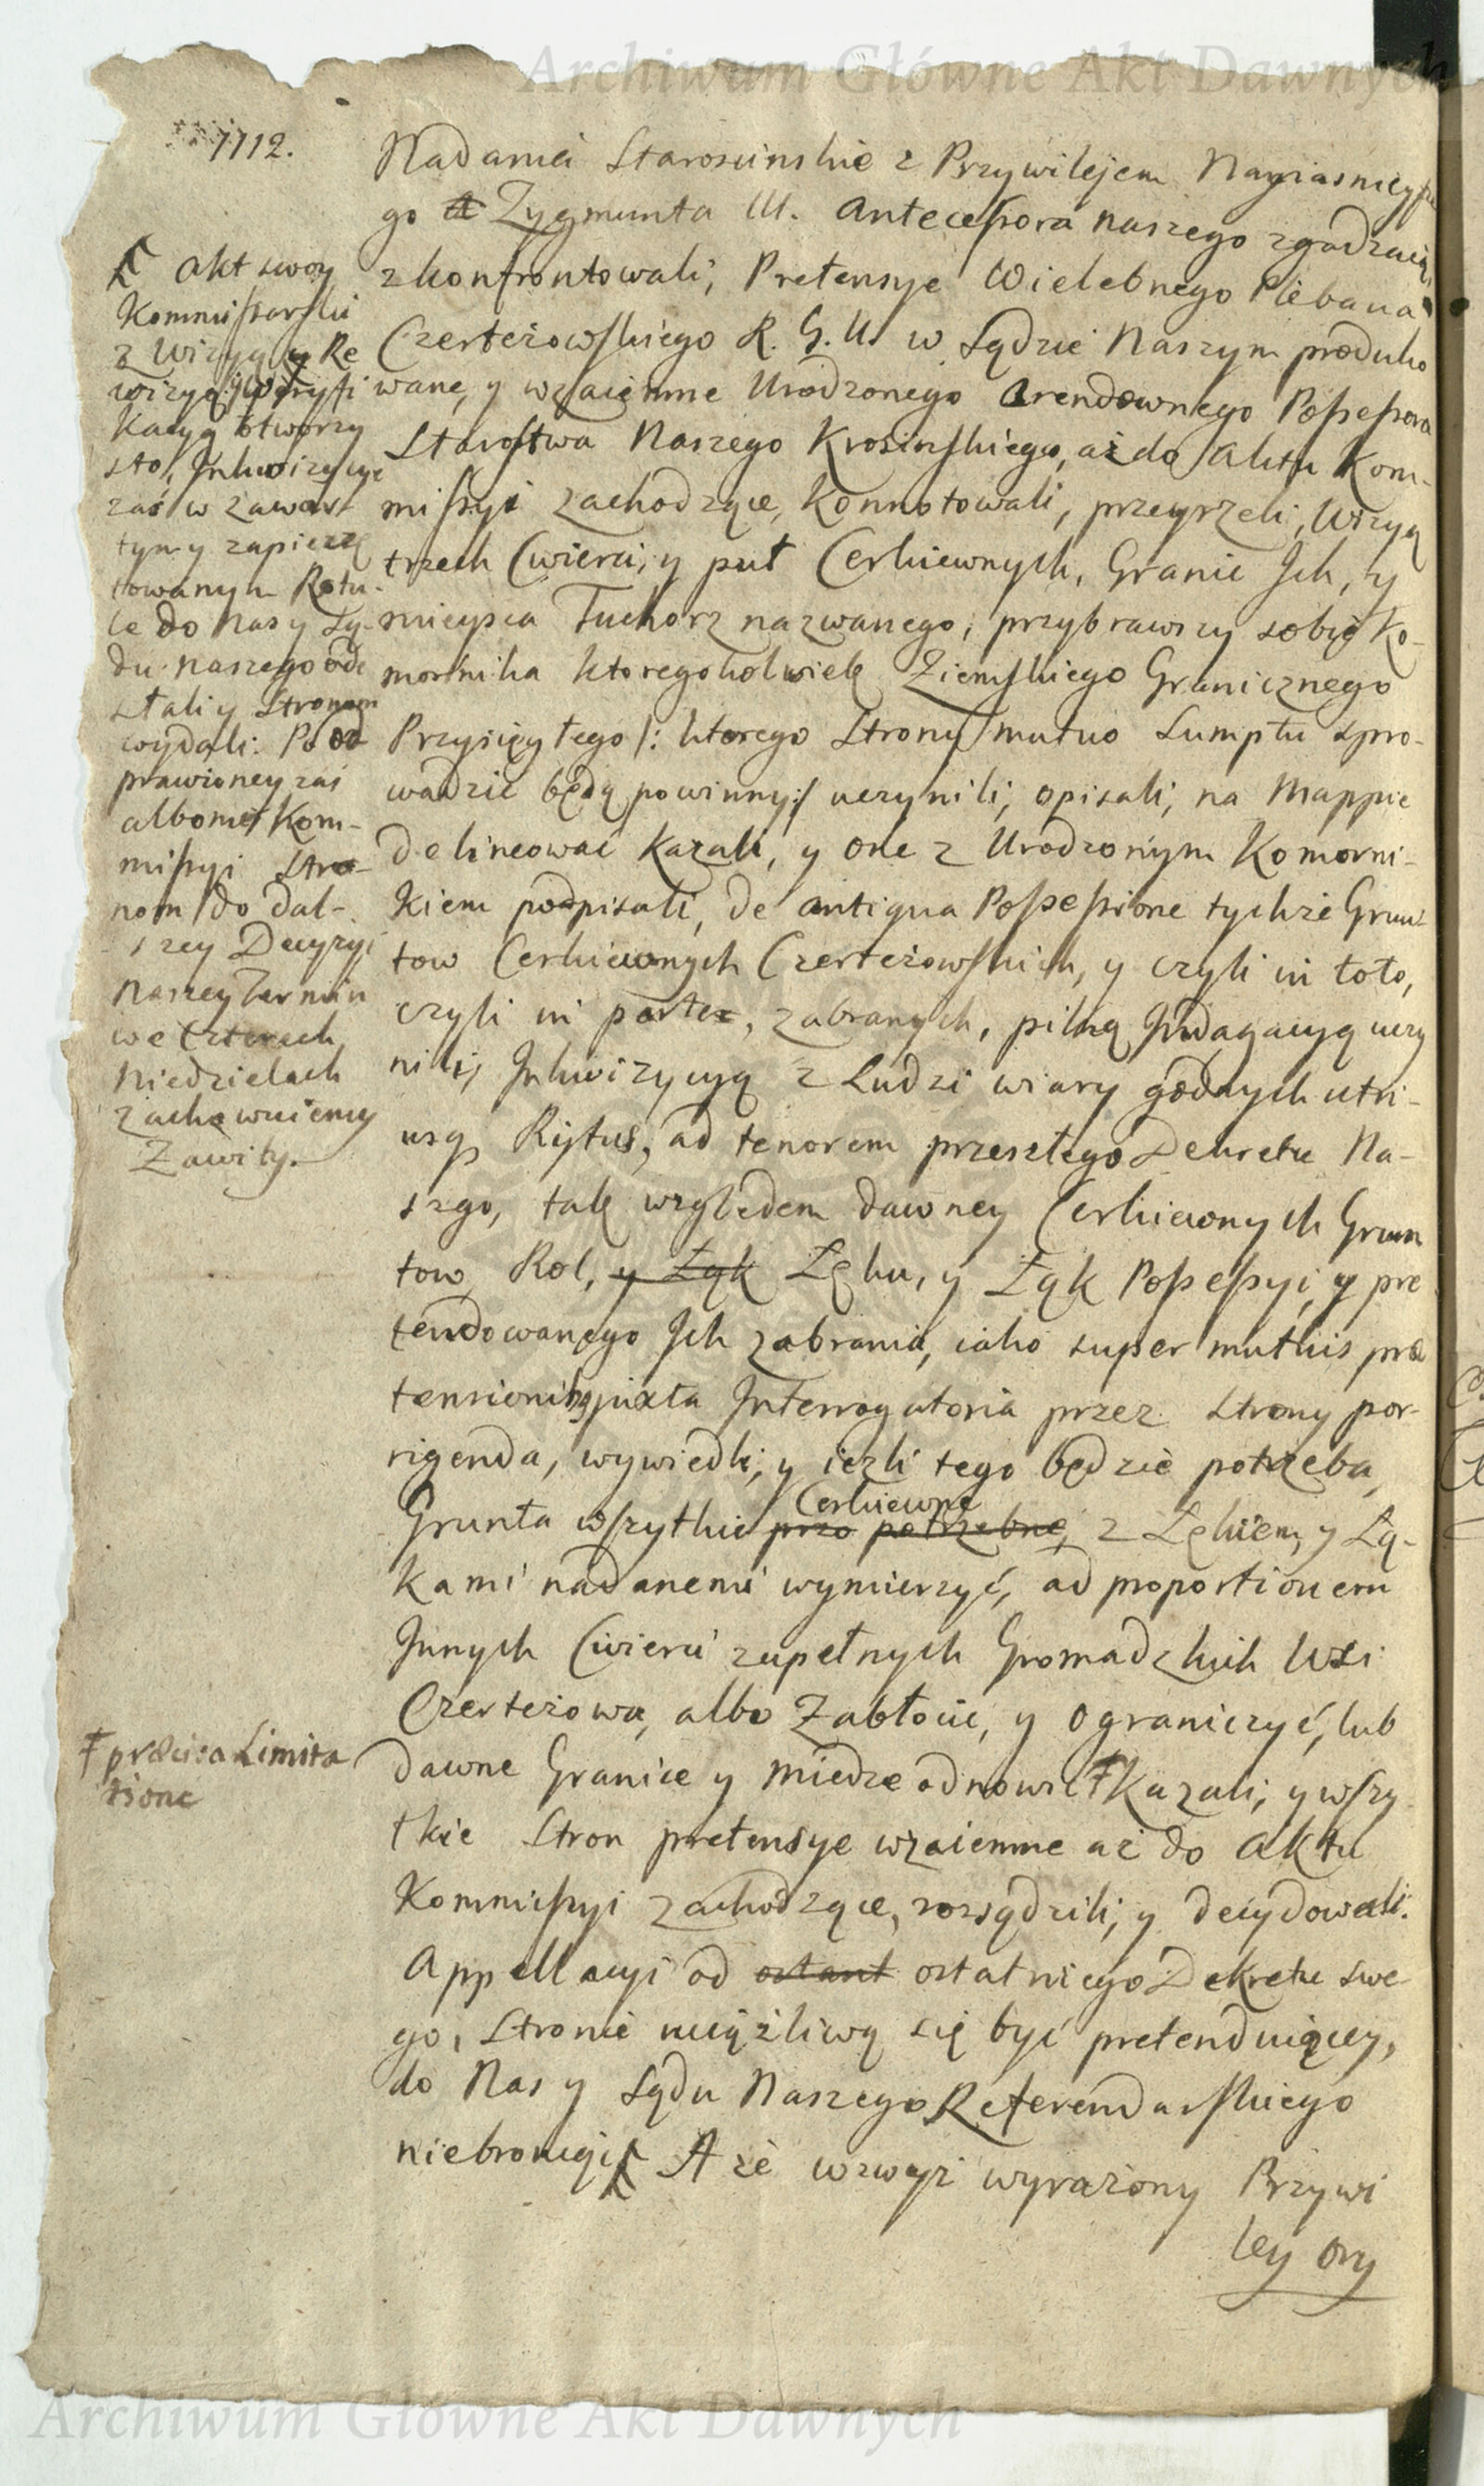 Archiwum Główne Akt Dawnych
1112.
Nadania Starościnskie z Przywilejem Nayiasnieysze
go Zygmunta III. Antecessora naszego zgadzaiące
zkonfrontowali; Pretensye Wielebnego Plebana
Czerteżowskiego R. G. U. w Sądzie Naszym produko
wane, y wzaiemne Urodzonego Arendownego Possessora
Starostwa Naszego Krosinskiego, aż do Aktu Kom-
missyi zachodzące, konnotowali, przeyrzeli, Wizyą
trzech Cwierci, y puł Cerkiewnych, Granic Ich, y
mieysca Tuchorz nazwanego, przybrawszy sobie Ko-
mornika ktoregokolwiek Ziemskiego Granicznego
Przysięgłego /: ktorego Strony mutuo Sumptu spro-
wadzić będą powinny :/ uczynili, opisali, na Mappie
delineować kazali, y one z Urodzonym Komorni-
kiem podpisali, de antiqua Possessione tychże Grun-
tow Cerkiewnych Czerteżowskich, y czyli in toto,
czyli in parte, zabranych, pilną Indagacyą uczy
nili; Inkwizycyą z Ludzi wiary godnych utri-
usq Ritus, ad tenorem przeszłego Dekretu Na-
szgo, tak względem dawney Cerkiewnych Grun
tow, Rol, y Łąk Lęku, y Łąk Possessyi, y pre
tendowanego Ich zabrania, iako super mutuis præ
tensionibq juxta Interrogatoria przez Strony por-
rigenda, wywiedli; y ieżli tego będzie potrzeba,
Cerkiewne
Grunta wszytkie przo potrzebne, z Lękiem, y Łą-
kami nadanemi wymierzyć, ad proportionem
Innych Cwierci zupełnych Gromadzkich Wsi
Czerteżowa, albo Zabłocie, y ograniczyć, lub
dawne Granice y miedze odnowić Ŧ kazali; y wszy
tkie Stron pretensye wzaiemne aż do Aktu
Kommissyi zachodzące, rozsądzili; y decydowali.
Appellacyi od ostant ostatniego Dekretu swe-
go, Stronie uciążliwą się być pretenduiącey,
do Nas y Sądu Naszego Referendarskiego
niebroniąc A że wzwyż wyrażony Przywi
ley ory
Akt swoy
Kommissarski
z Wizyą y Re
wizyą, y weryfi
kacyą otworzy
sto, Inkwizycye
zaś w zawart
tym y zapieczę
towanym Rotu-
le do Nas y Są-
du naszego ode
słali y Stronom
wydali: Po od
prawioney zaś
albo nie Kom-
missyi Stro-
nom do dal-
szey Decyzyi
Naszey Termin
we Czterech
Niedzielach
zachowuiemy
Zawity.
Ŧ præcisa Limita
tione
Archiwum Główne Akt Dawnych